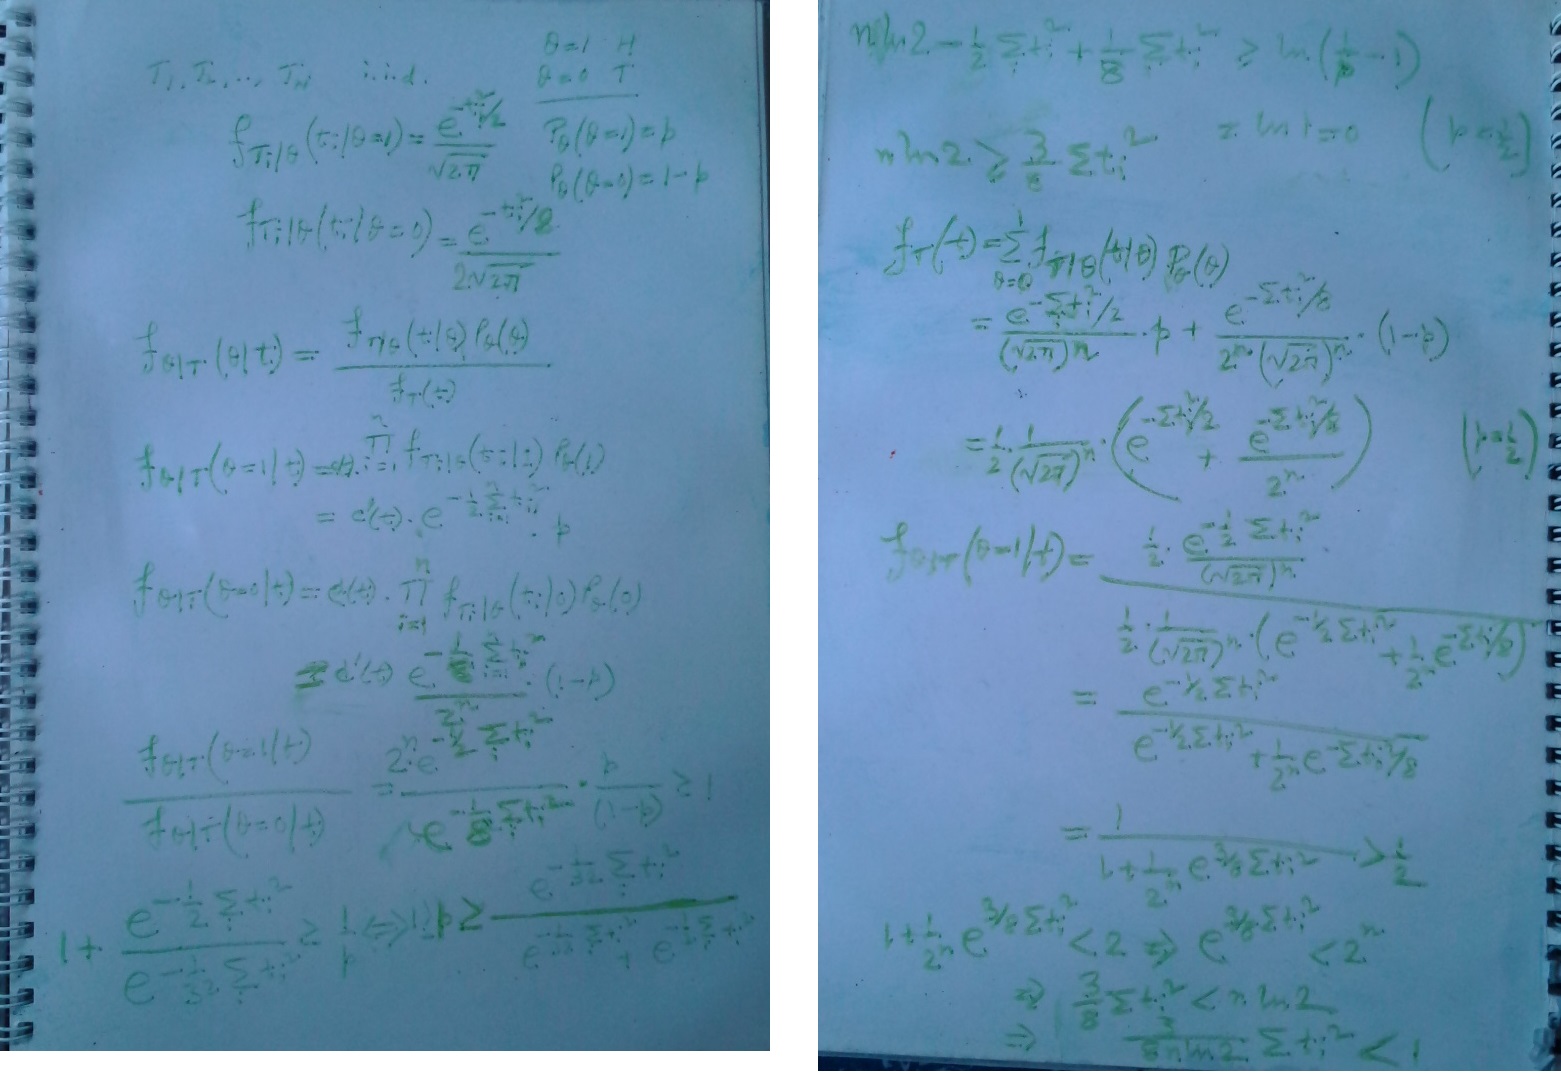 T₁, T₂, ..., Tₙ i.i.d.
θ=1 H
θ=0 T
f_{Ti|θ}(ti|θ=1) = e^{-ti²/2} / √2π
P_θ(θ=1) = p
P_θ(θ=0) = 1-p
f_{Ti|θ}(ti|θ=0) = e^{-ti²/8} / 2√2π
f_{θ|T}(θ|t) = f_{T|θ}(t|θ) P_θ(θ) / f_T(t)
f_{θ|T}(θ=1|t) = c(t) · ∏_{i=1}^{n} f_{Ti|θ}(ti|1) P_θ(1)
= c'(t) · e^{-1/2 Σ_{i=1}^{n} ti²} · p
f_{θ|T}(θ=0|t) = c(t) · ∏_{i=1}^{n} f_{Ti|θ}(ti|0) P_θ(0)
= c'(t) e^{-1/8 Σ_{i=1}^{n} ti²} / 2ⁿ · (1-p)
f_{θ|T}(θ=1|t) / f_{θ|T}(θ=0|t) = 2ⁿ e^{-1/2 Σ ti²} / e^{-1/8 Σ ti²} · p/(1-p) ≥ 1
1 + e^{-1/2 Σ ti²} / e^{-1/32 Σ ti²} ≥ 1/p ⇔ 1 ≥ p ≥ e^{-1/32 Σ ti²} / e^{-1/32 Σ ti²} + e^{-1/2 Σ ti²}
n ln 2 - 1/2 Σ ti² + 1/8 Σ ti² ≥ ln(1/p - 1)
= ln 1 = 0 (p = 1/2)
n ln 2 ≥ 3/8 Σ ti²
f_T(t) = Σ_{θ=0}^{1} f_{T|θ}(t|θ) P_θ(θ)
= e^{-Σ ti²/2} / (√2π)ⁿ · p + e^{-Σ ti²/8} / 2ⁿ (√2π)ⁿ · (1-p)
= 1/2 · 1/(√2π)ⁿ · (e^{-Σ ti²/2} + e^{-Σ ti²/8} / 2ⁿ) (p = 1/2)
f_{θ|T}(θ=1|t) = 1/2 · e^{-1/2 Σ ti²} / (√2π)ⁿ
1/2 · 1/(√2π)ⁿ · (e^{-1/2 Σ ti²} + 1/2ⁿ e^{-Σ ti²/8})
= e^{-1/2 Σ ti²} / e^{-1/2 Σ ti²} + 1/2ⁿ e^{-Σ ti²/8}
= 1 / 1 + 1/2ⁿ e^{3/8 Σ ti²} > 1/2
1 + 1/2ⁿ e^{3/8 Σ ti²} < 2 ⇒ e^{3/8 Σ ti²} < 2ⁿ
⇒ 3/8 Σ ti² < n ln 2
⇒ 3/8n ln 2 Σ ti² < 1